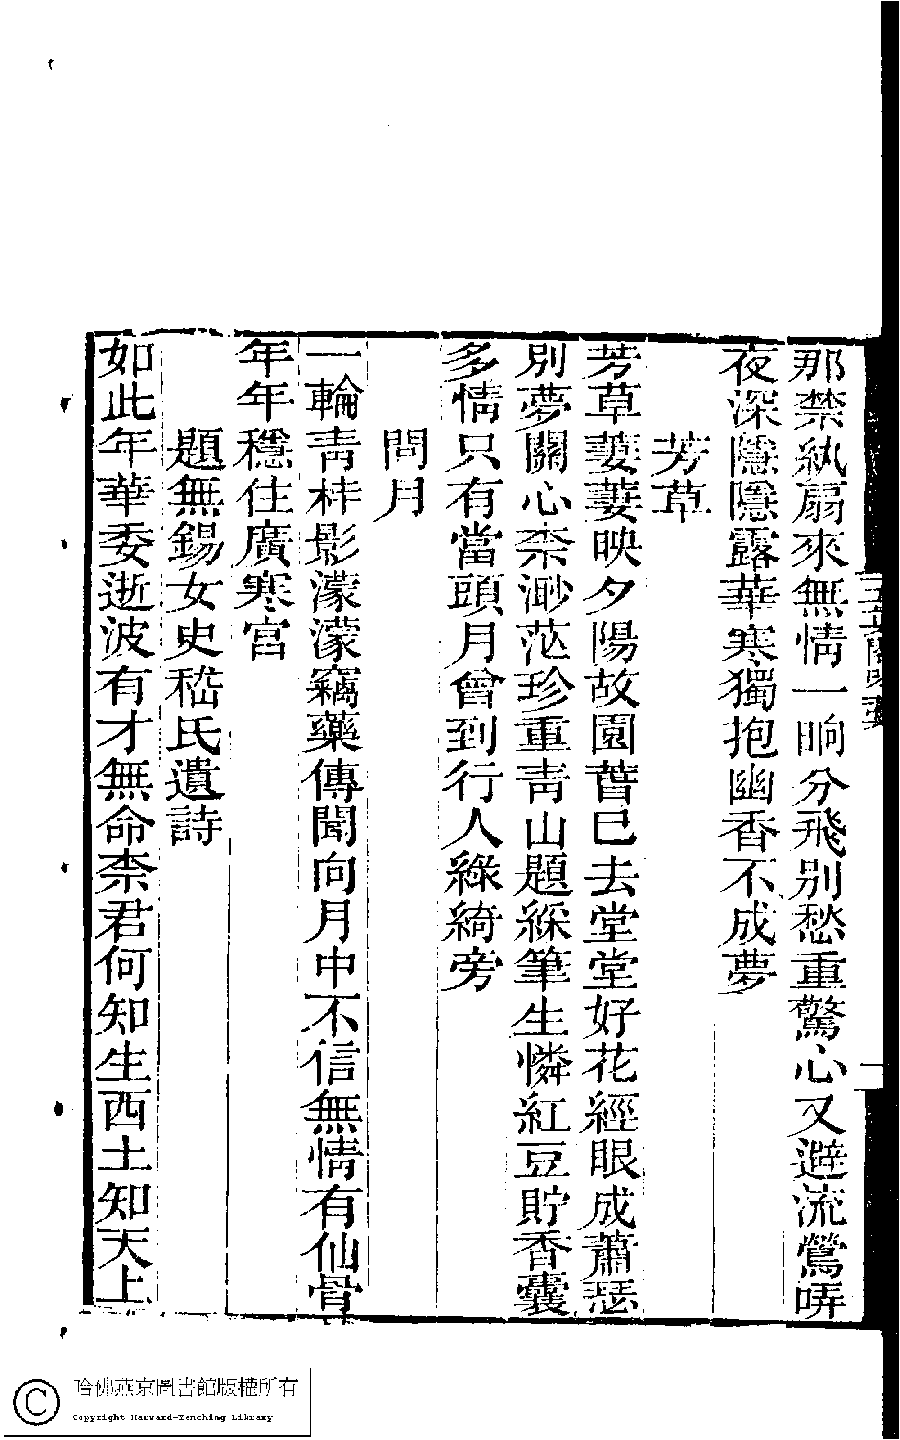 那禁紈扇來無情一晌分飛别愁重驚心又避流鶯哢
夜深隱隱露華寒獨抱幽香不成夢
芳草
芳草萋萋映夕陽故園萻已去堂堂好花經眼成蕭瑟
別夢關心柰渺茫珍重青山題綵筆生憐紅豆貯香囊
多情只有當頭月曾到行人綠綺旁
問月
一輪青桂影濛濛竊藥傳聞向月中不信無情有仙骨
年年穩住廣寒宮
題無錫女史嵇氏遺詩
如此年華委逝波有才無命柰君何知生西土知天上
哈佛燕京圖書館版權所有
Copyright Harvard-Yenching Library